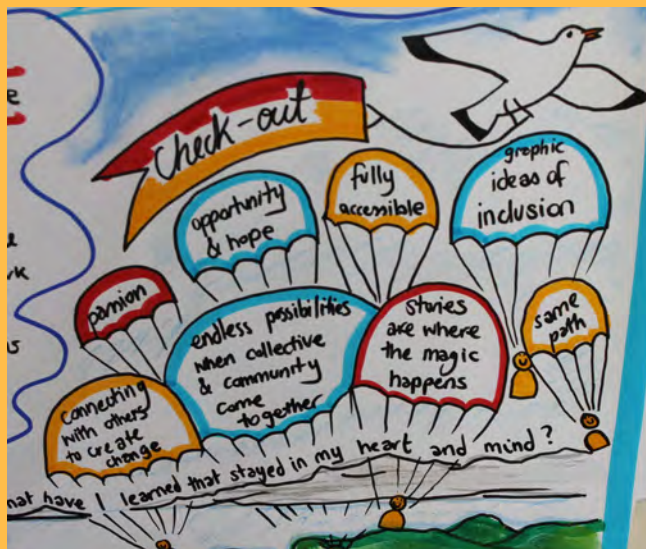 Check-out
graphic
ideas of
inclusion
fully
accessible
opportunity
& hope
passion
endless possibilities
when collective
& community
come
together
stories
are where
the magic
happens
same
path
connecting
with others
to create
change
have I learned that stayed in my heart and mind?